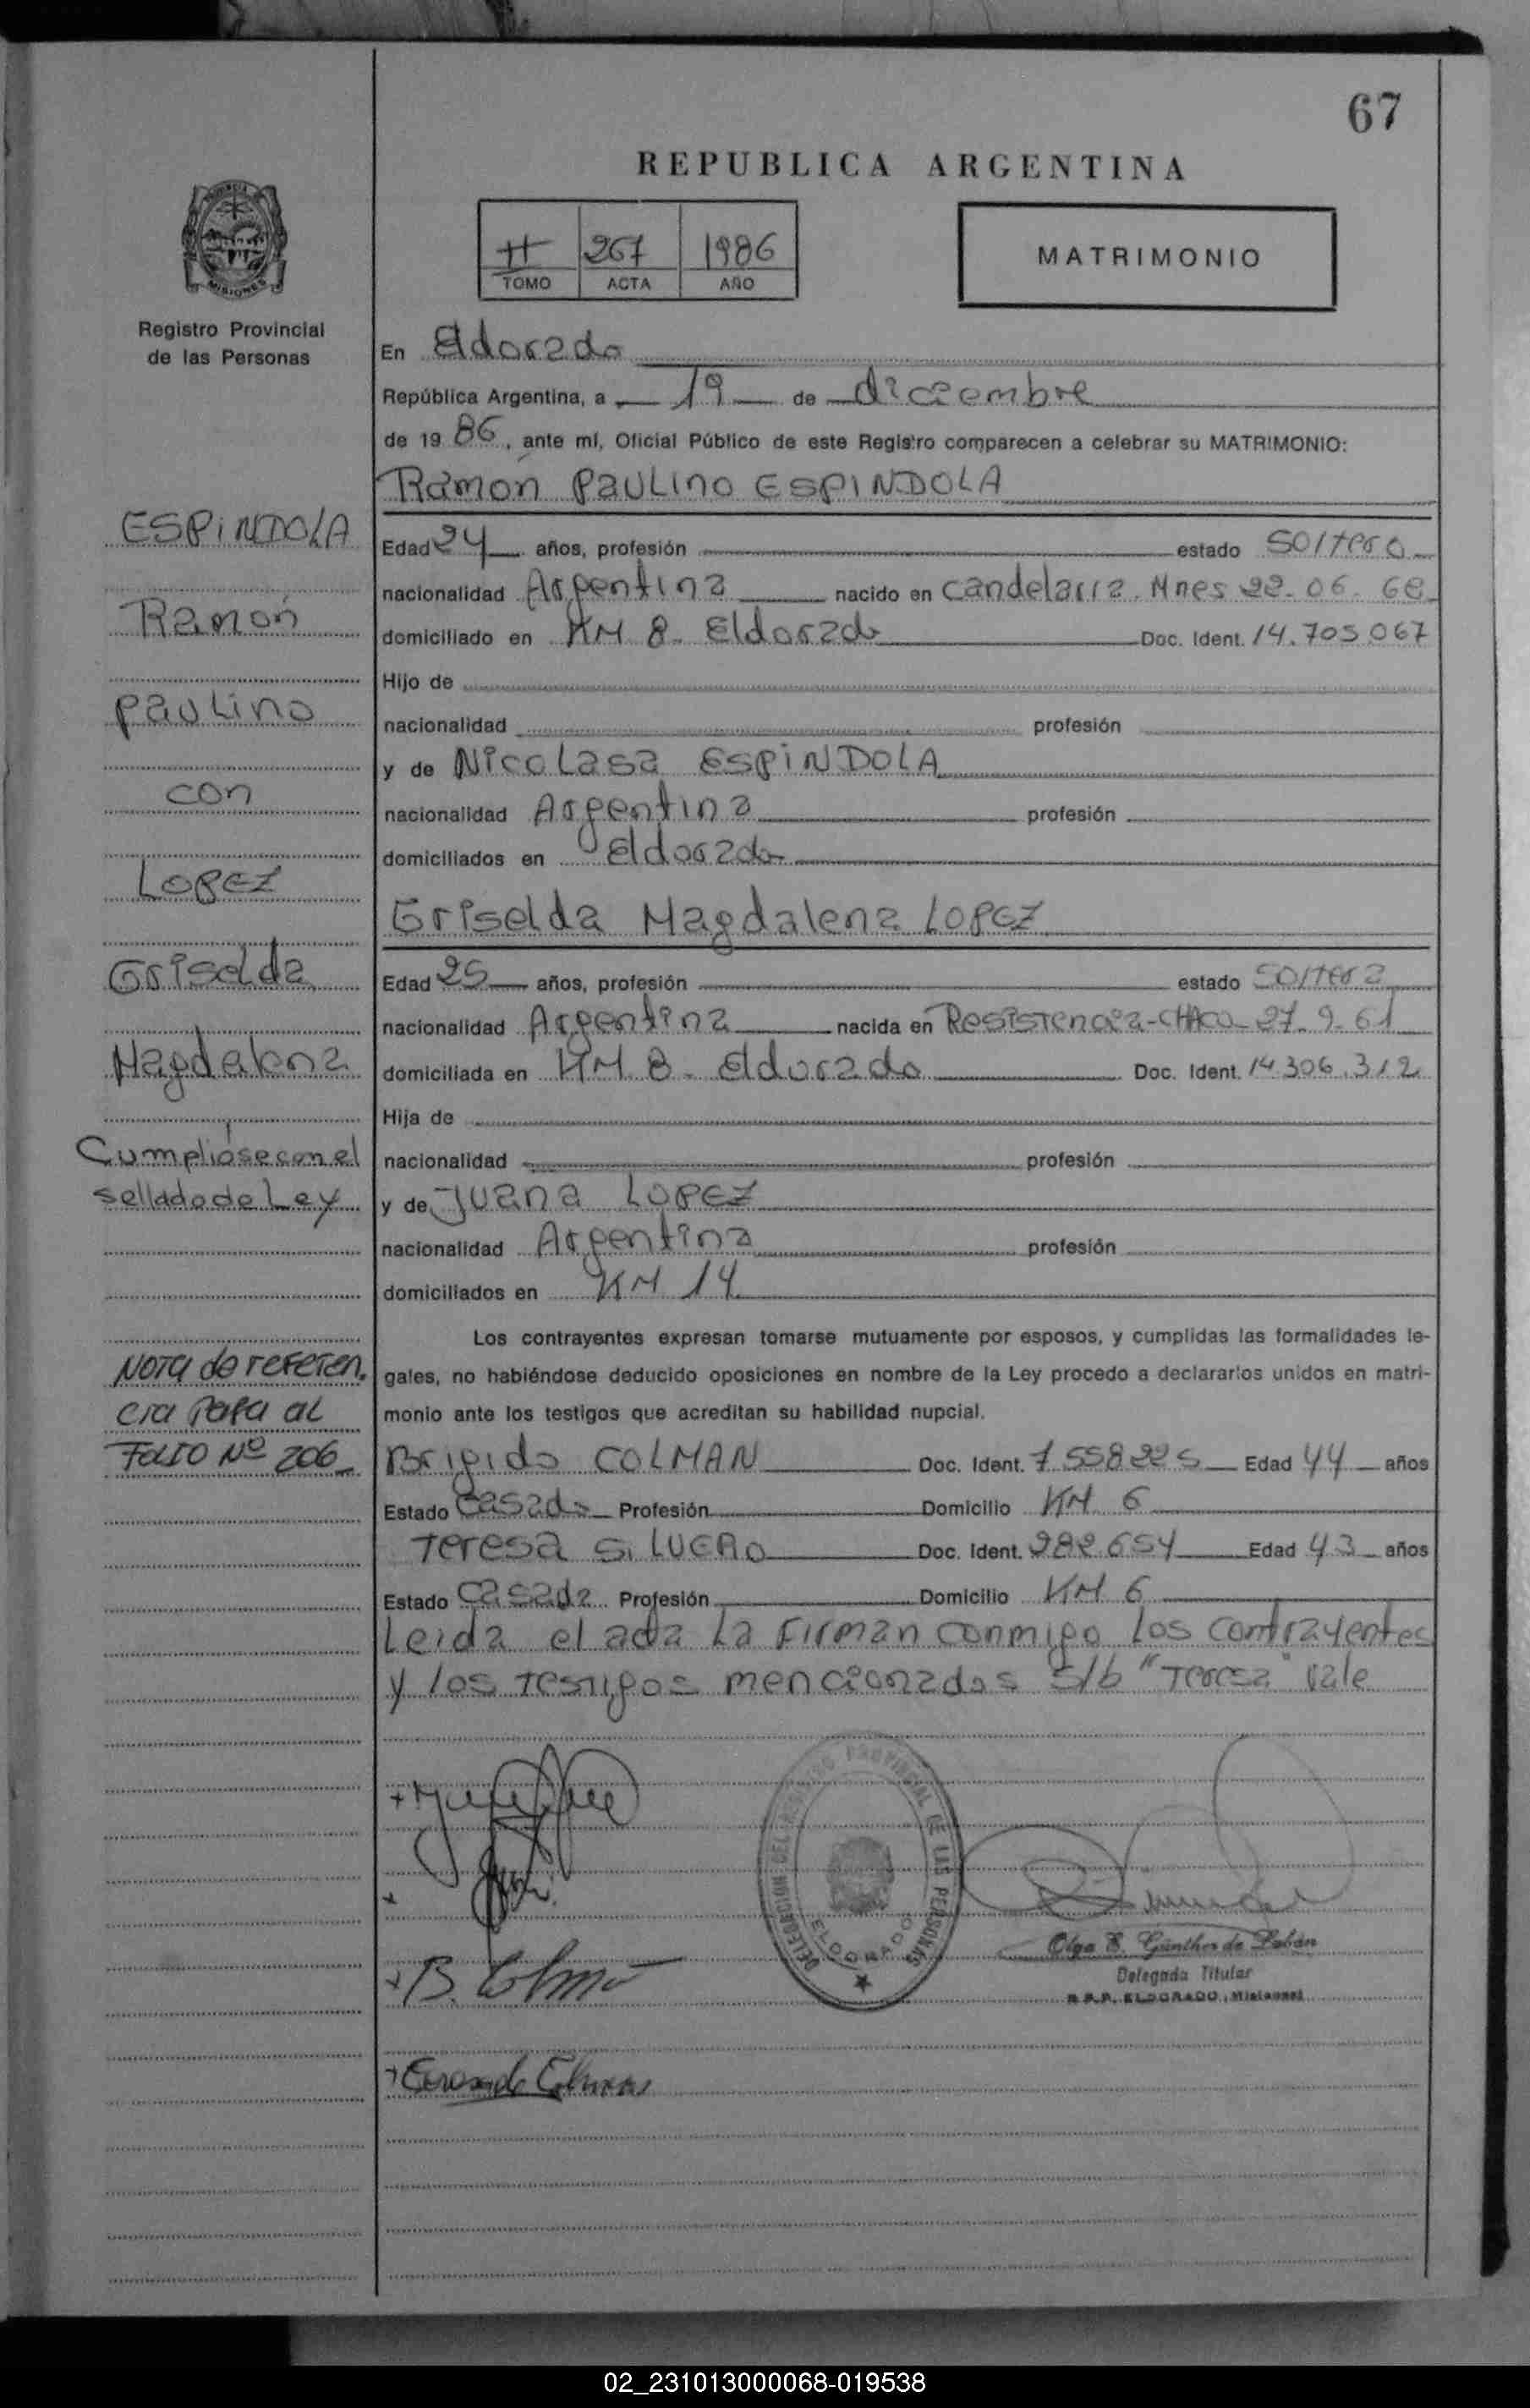 67
REPUBLICA ARGENTINA
II 267 1986
TOMO ACTA AÑO
MATRIMONIO
PROVINCIA
MISIONES
Registro Provincial
de las Personas
En Eldorado
República Argentina, a 19 de diciembre
de 19 86, ante mí, Oficial Público de este Registro comparecen a celebrar su MATRIMONIO:
Ramón Paulino ESPINDOLA
Edad 24 años, profesión estado soltero
nacionalidad Argentina nacido en Candelaria. Mnes 22-06-62
domiciliado en KM 8. Eldorado Doc. Ident. 14.705.067
Hijo de
nacionalidad profesión
y de Nicolasa ESPINDOLA
nacionalidad Argentina profesión
domiciliados en Eldorado
Griselda Magdalena LOPEZ
Edad 25 años, profesión estado soltera
nacionalidad Argentina nacida en Resistencia-CHACO-27.9.61
domiciliada en KM 8. Eldorado Doc. Ident. 14.306.312
Hija de
nacionalidad profesión
y de Juana LOPEZ
nacionalidad Argentina profesión
domiciliados en KM 14
Los contrayentes expresan tomarse mutuamente por esposos, y cumplidas las formalidades le-
gales, no habiéndose deducido oposiciones en nombre de la Ley procedo a declararlos unidos en matri-
monio ante los testigos que acreditan su habilidad nupcial.
Brigido COLMAN Doc. Ident. 7.558225 Edad 44 años
Estado Casado Profesión Domicilio KM 6
Teresa SiLUERO Doc. Ident. 282.654 Edad 43 años
Estado Casada Profesión Domicilio KM 6
Leida el acta la firman conmigo los contrayentes
y los testigos mencionados s/b "Teresa" vale
ESPINDOLA
Ramón
Paulino
con
LOPEZ
Griselda
Magdalena
Cumplióse con el
sellado de Ley
Nota de referen.
cia Pasa al
Folio Nº 206
DELEGACION DEL REGISTRO PROVINCIAL DE LAS PERSONAS
ELDORADO
B. Colman
Olga E. Günther de
Delegada Titular
R.P.P. ELDORADO (Misiones)
02_231013000068-019538